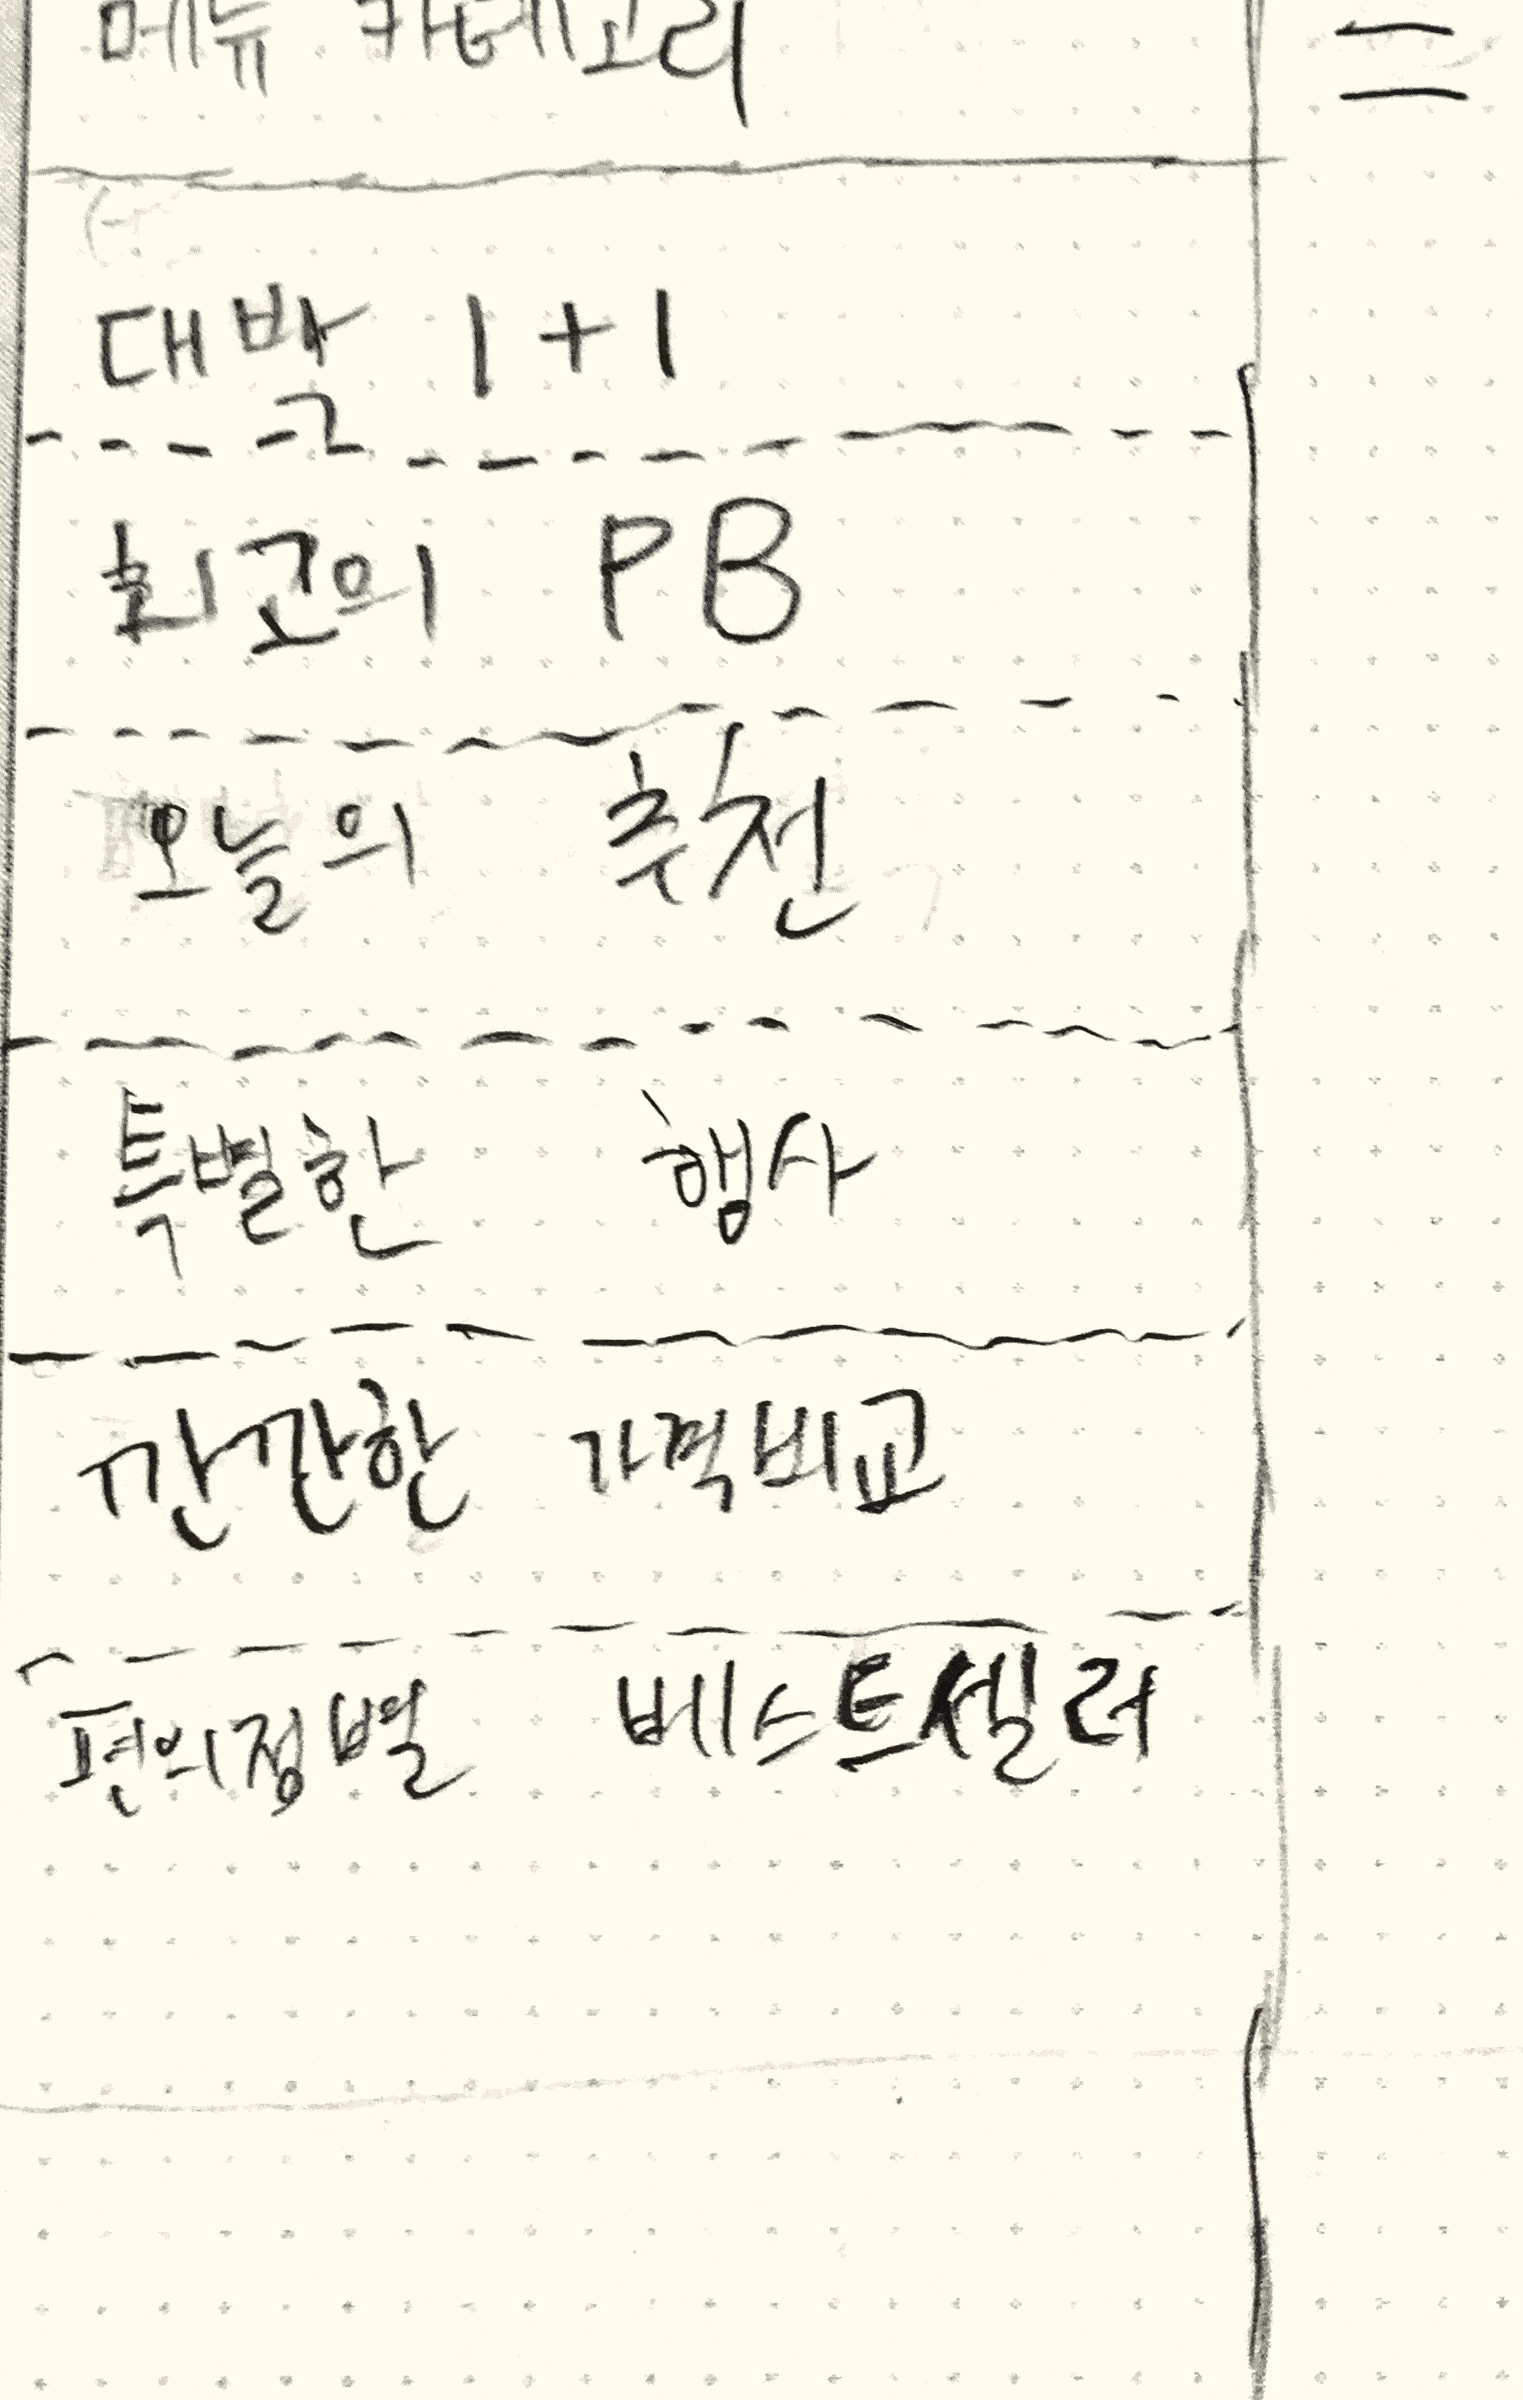 메뉴 카테고리
대박 1+1
최고의 PB
오늘의 추천
특별한 행사
깐깐한 가격비교
편의점별 베스트셀러